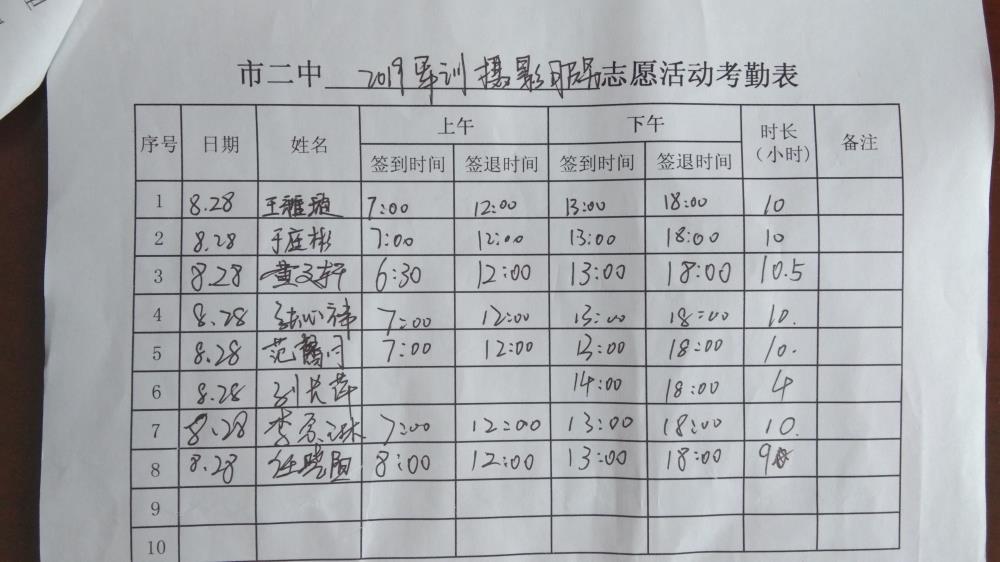 市二中 2019军训摄影服务志愿活动考勤表
序号 日期 姓名 上午 下午 时长（小时） 备注
签到时间 签退时间 签到时间 签退时间
1 8.28 王雅璇 7:00 12:00 13:00 18:00 10
2 8.28 于庭彬 7:00 12:00 13:00 18:00 10
3 8.28 黄文轩 6:30 12:00 13:00 18:00 10.5
4 8.28 7:00 12:00 13:00 18:00 10.
5 8.28 7:00 12:00 13:00 18:00 10.
6 8.28 14:00 18:00 4
7 8.28 7:00 12:00 13:00 18:00 10.
8 8.28 8:00 12:00 13:00 18:00 9
9
10